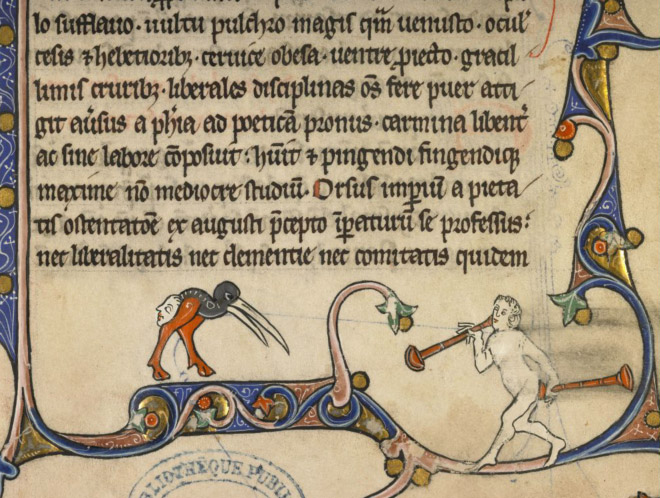 lo sufflauo · uultu pulchro magis q̄m uenusto · ocul̕
cesis ⁊ hebetiorib; · ceruice obesa · uentre p̄iecto · gracil
limis crurib; · liberales disciplinas oēs fere puer atti
git au̕sus a ph̕ia ad poeticā pronus · carmina libent̕
ac sine labore cōposuit : h̕uit ⁊ pingendi fingendiq;
maxime nō mediocre studiū . Orsus imp̄iū a pieta
tis ostentatōe ex augusti p̄cepto īp̄aturū se professus :
nec liberalitatis nec clementie nec comitatis quidem
BLIOTHÈQUE PUBLI